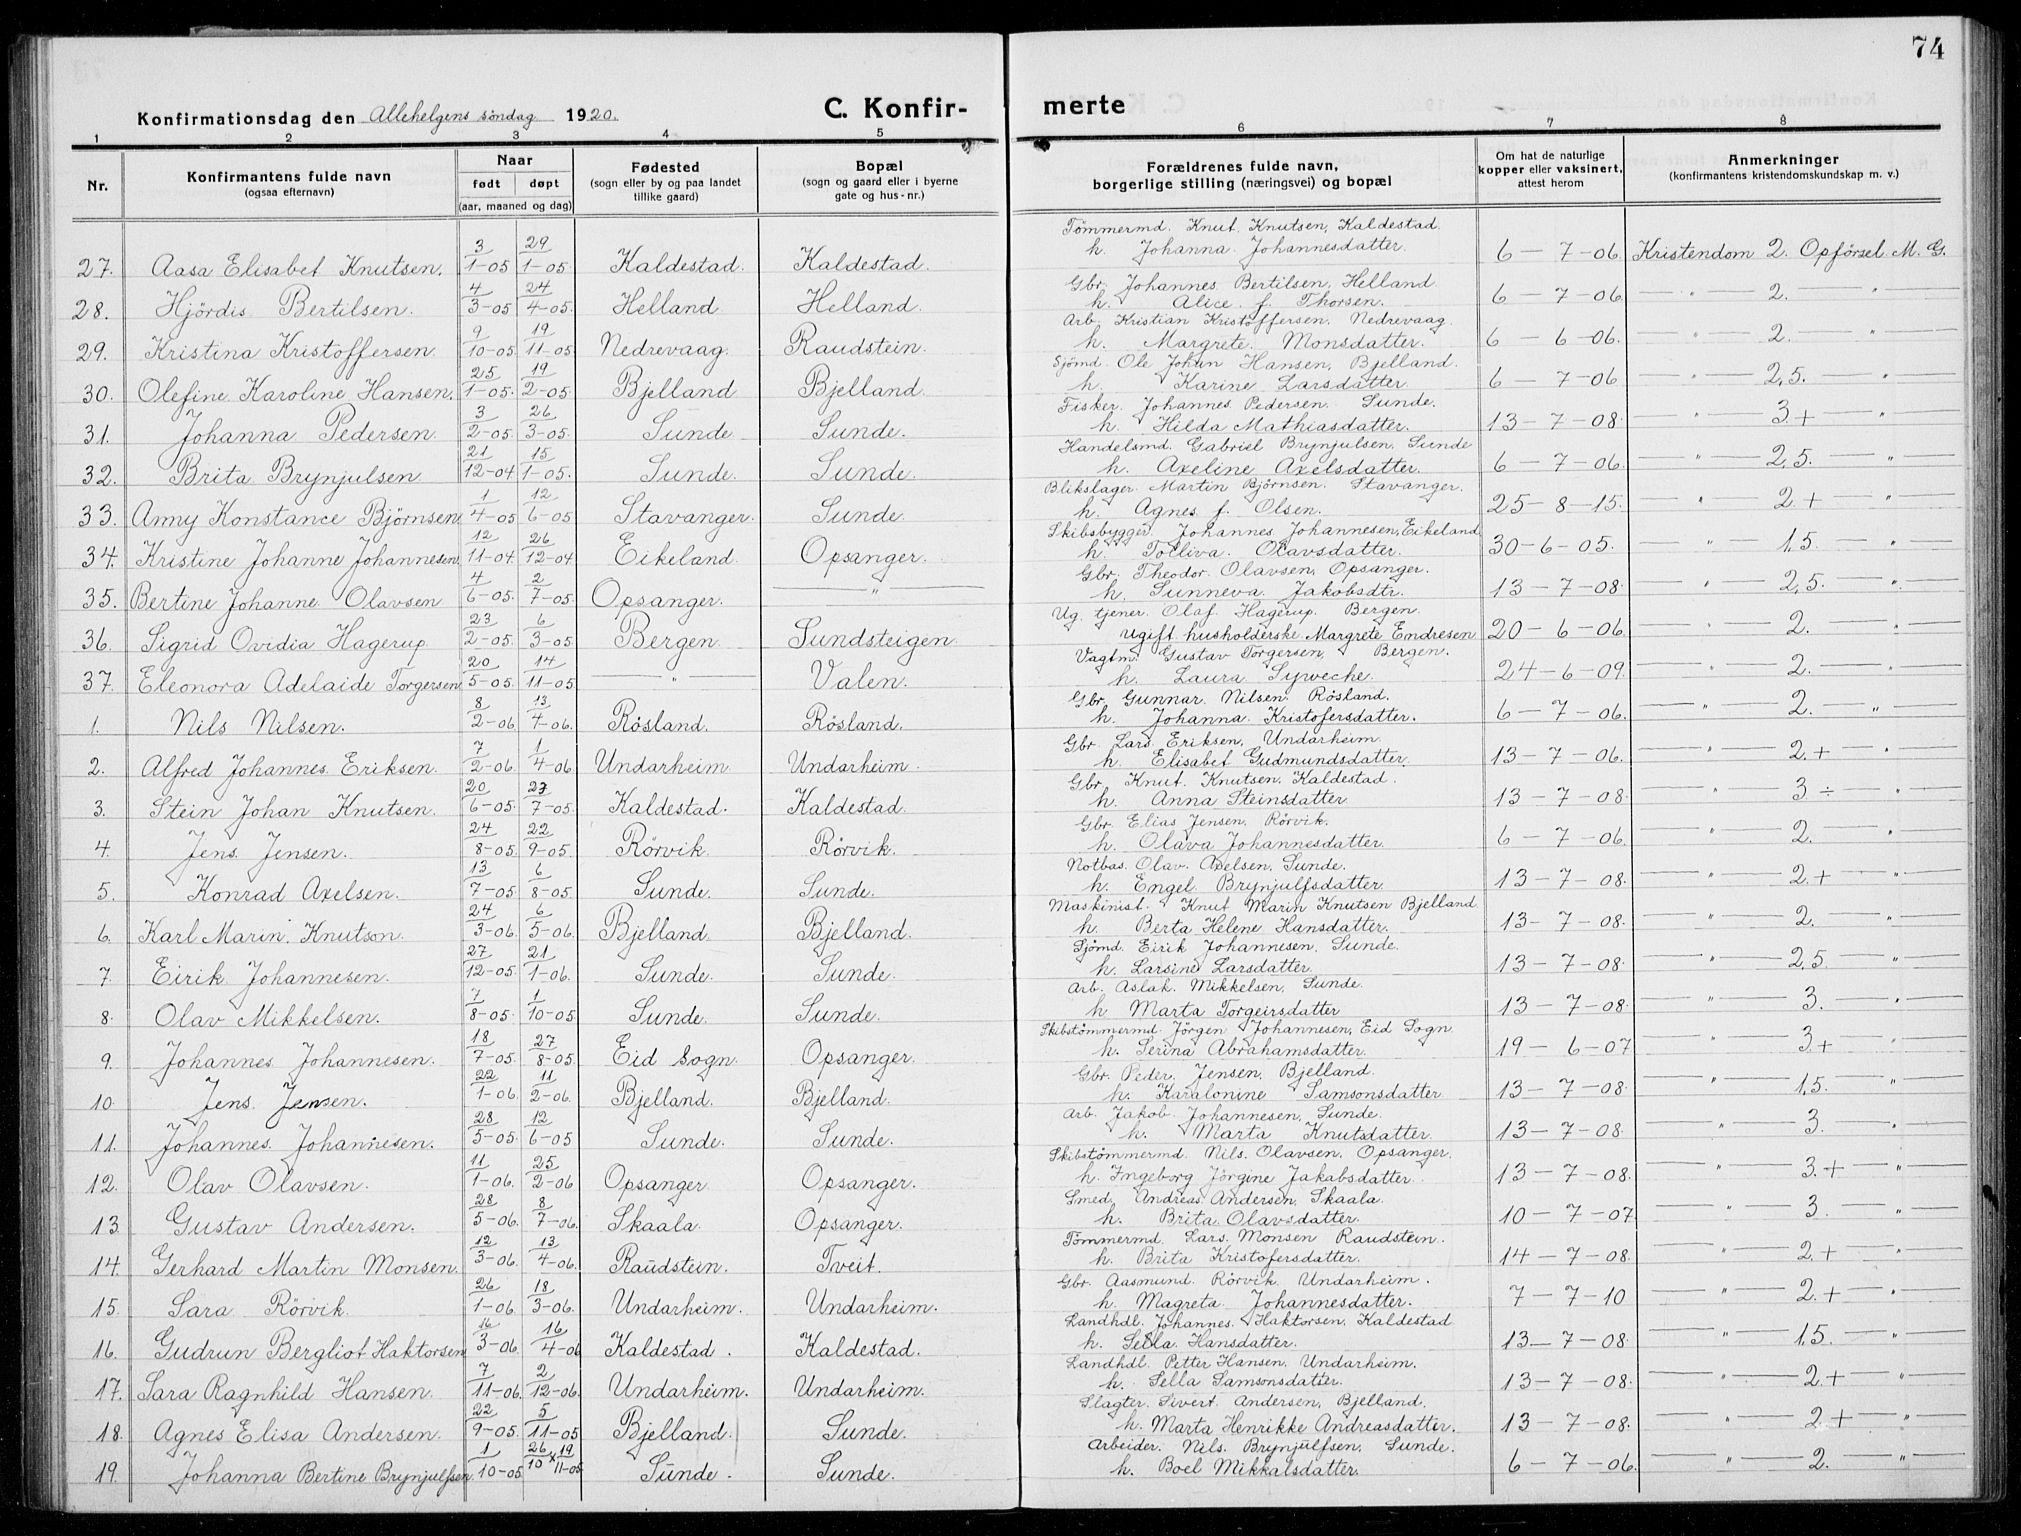 74
Konfirmationsdag den Allehelgens söndag 1920.
C. Konfirmerte
1 2 3 4 5 6 7 8
Nr. Konfirmantens fulde navn (ogsaa efternavn) Naar født døpt (aar, maaned og dag) Fødested (sogn eller by og paa landet tillike gaard) Bopæl (sogn og gaard eller i byerne gate og hus-nr.) Forældrenes fulde navn, borgerlige stilling (næringsvei) og bopæl Om hat de naturlige kopper eller vaksinert, attest herom Anmerkninger (konfirmantens kristendomskundskap m. v.)
27. Aasa Elisabet Knutsen. 3/1-05 29/1-05 Kaldestad. Kaldestad. Tömmermd. Knut Knutsen, Kaldestad h. Johanna Johannesdatter. 6-7-06. Kristendom 2. Opförsel M. G.
28. Hjördis Bertilsen. 4/3-05 24/4-05. Helland Helland. Gbr. Johannes Bertilsen, Helland h. Alice f. Thorsen. 6-7-06. — " — 2. — " —
29. Kristina Kristoffersen. 9/10-05 19/11-05 Nedrevaag. Raudstein. Arb. Kristian Kristoffersen, Nedrevaag. h. Margrete Monsdatter. 6-6-06. — " — 2. — " —
30. Olefine Karoline Hansen. 25/1-05 19/2-05 Bjelland Bjelland. Sjömd. Ole Johan Hansen, Bjelland. h. Karine Larsdatter 6-7-06 — " — 2,5. — " —
31. Johanna Pedersen. 3/2-05. 26/3-05. Sunde Sunde. Fisker. Johannes Pedersen. Sunde. h. Hilda Mathiasdatter. 13-7-08. — " — 3+ — " —
32. Brita Brynjulsen 21/12-04 15/1-05. Sunde. Sunde. Handelsmd. Gabriel Brynjulsen, Sunde h. Axeline Axelsdatter. 6-7-06. — " — 2,5. — " —
33. Anny Konstance Björnsen. 1/4-05 12/6-05 Stavanger. Sunde. Blikslager. Martin Björnsen. Stavanger. h. Agnes f. Olsen. 25-8-15. — " — 2+ — " —
34. Kristine Johanne Johannesen. 12/11-04 26/12-04 Eikeland. Opsanger. Skibsbygger Johannes Johannesen, Eikeland h. Tolliva. Olavsdatter. 30-6-05. — " — 1,5. — " —
35. Bertine Johanne Olavsen 4/6-05. 2/7-05. Opsanger. — " — Gbr. Theodor Olavsen, Opsanger. h. Sunneva Jakobsdtr. 13-7-08. — " — 2,5. — " —
36. Sigrid Ovidia Hagerup. 23/2-05. 6/3-05. Bergen. Sundsteigen. Ug. tjener. Olaf Hagerup. Bergen. Ugift husholderske Margrete Endresen 20-6-06. — " — 2. — " —
37. Eleonora Adelaide Torgersen. 20/5-05. 14/11-05 — " — Valen. Vagtm. Gustav Torgersen, Bergen. h. Laura Syweche. 24-6-09. — " — 2. — " —
1. Nils Nilsen. 8/2-06 13/4-06. Rösland. Rösland. Gbr. Gunnar Nilsen Rösland. h. Johanna Kristofersdatter. 6-7-06. — " — 2. — " —
2. Alfred Johannes Eriksen. 7/2-06. 1/4-06 Undarheim Undarheim. Gbr. Lars Eriksen, Undarheim h. Elisabet Gudmundsdatter. 13-7-06. — " — 2.+ — " —
3. Stein Johan Knutsen. 20/6-05 27/7-05. Kaldestad. Kaldestad. Gbr. Knut Knutsen, Kaldestad. h. Anna Steinsdatter 13-7-08. — " — 3 ÷ — " —
4. Jens Jensen. 24/8-05. 22/9-05. Rörvik. Rörvik. Gbr. Elias Jensen, Rörvik. h. Olava Johannesdatter. 6-7-06. — " — 2. — " —
5. Konrad Axelsen. 13/7-05. 6/8-05. Sunde. Sunde. Notbas. Olav Axelsen, Sunde. h. Engel Brynjulfsdatter. 13-7-08. — " — 2.+ — " —
6. Karl Marin. Knutson. 24/3-06. 6/5-06. Bjelland. Bjelland. Maskinist. Knut Marin Knutsen Bjelland h. Berta Helene Hansdatter. 13-7-08. — " — 2. — " —
7. Eirik Johannesen. 27/12-05. 21/1-06. Sunde. Sunde. Sjömd. Eirik Johannesen, Sunde. h. Larsine Larsdatter. 13-7-08. — " — 2,5. — " —
8. Olav Mikkelsen. 7/8-05. 1/10-05. Sunde. Sunde. Arb. Aslak Mikkelsen, Sunde. h Marta Torgeirsdatter 13-7-08. — " — 3. — " —
9. Johannes Johannesen. 18/7-05. 27/8-05. Eid Sogn. Opsanger. Skibstömmermd. Jörgen Johannesen, Eid Sogn. h. Serina Abrahamsdatter. 19-6-07 — " — 3+ — " —
10. Jens Jensen. 22/1-06. 11/2-06. Bjelland. Bjelland. Gbr. Peder Jensen, Bjelland. h. Karalonine Samsonsdatter. 13-7-08. — " — 1,5. — " —
11. Johannes Johannesen. 28/5-05. 12/6-05 Sunde. Sunde. Arb. Jakob Johannesen, Sunde. h. Marta Knutsdatter. 13-7-08. — " — 3. — " —
12. Olav Olavsen. 11/1-06. 25/2-06 Opsanger Opsanger. Skibstömmermd. Nils Olavsen, Opsanger. h. Ingeborg Jörgine Jakabsdatter. 13-7-08. — " — 3.+ — " —
13 Gustav Andersen. 28/5-06. 8/7-06. Skaala. Opsanger. Smed, Andreas Andersen, Skaala. h. Brita Olavsdatter. 10-7-07 — " — 3. — " —
14. Gerhard Martin Monsen. 12/3-06. 13/4-06. Raudstein. Tveit. Tömmermd. Lars Monsen Raudstein. h. Brita Kristofersdatter. 14-7-08. — " — 2.+ — " —
15. Sara Rörvik. 26/1-06. 18/3-06. Undarheim. Undarheim. Gbr. Aasmund Rörvik, Undarheim. h. Magreta Johannesdatter. 7-7-10 — " — 2.+ — " —
16. Gudrun Bergliot Haktorsen 16/3-06. 16/4-06 Kaldestad. Kaldestad. Landhdl. Johannes Haktorsen, Kaldestad h. Sella Hansdatter. 13-7-08. — " — 1,5. — " —
17. Sara Ragnhild Hansen. 7/11-06. 2/12-06. Undarheim. Undarheim. Landhdl. Petter Hansen, Undarheim. h. Sella Samsonsdatter. 13-7-08. — " — 2.+ — " —
18. Agnes Elisa Andersen. 22/9-05. 5/11-05 Bjelland. Sunde. Slagter. Sivert Andersen, Bjelland. h. Marta Henrikke Andreasdatter. 13-7-08. — " — 2.+ — " —
19. Johanna Bertine Brynjulfsen. 1/10-05. 26/10 x 19/11-05. Sunde. Sunde. Arbeider. Nils Brynjulfsen, Sunde. h. Boel Mikkalsdatter. 6-7-06. — " — 2. — " —